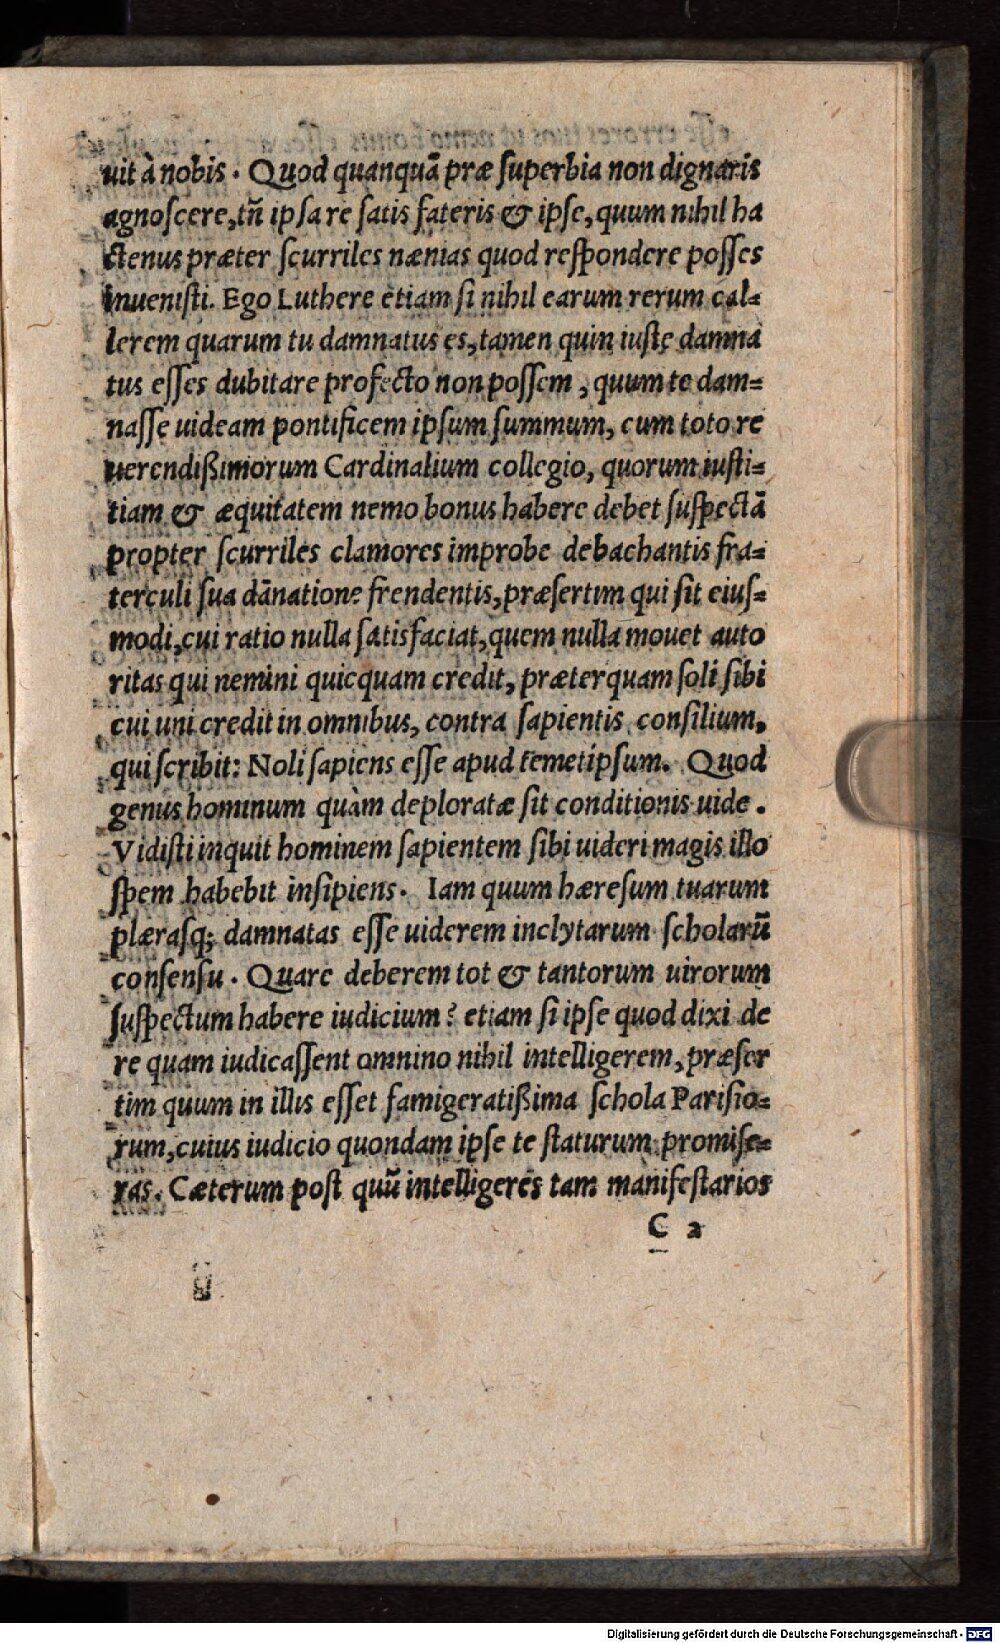 uit à nobis. Quod quanquã præ ſuperbia non dignaris
agnoſcere, tñ ipſa re ſatis fateris & ipſe, quum nihil ha
ctenus præter ſcurriles nænias quod reſpondere poſſes
inueniſti. Ego Luthere etiam ſi nihil earum rerum cal-
lerem quarum tu damnatus es, tamen quin iuſte damna
tus eſſes dubitare profecto non poſſem, quum te dam-
naſſe uideam pontificem ipſum ſummum, cum toto re
uerendißimorum Cardinalium collegio, quorum iuſti-
tiam & æquitatem nemo bonus habere debet ſuſpectã
propter ſcurriles clamores improbe debachantis fra-
terculi ſua dãnatione frendentis, præſertim qui ſit eiuſ-
modi, cui ratio nulla ſatisfaciat, quem nulla mouet auto
ritas qui nemini quicquam credit, præterquam ſoli ſibi
cui uni credit in omnibus, contra ſapientis conſilium,
qui ſcribit: Noli ſapiens eſſe apud temetipſum. Quod
genus hominum quàm deploratæ ſit conditionis uide.
Vidiſti inquit hominem ſapientem ſibi uideri magis illo
ſpem habebit inſipiens. Iam quum hæreſum tuarum
pleraſq; damnatas eſſe uiderem inclytarum ſcholarũ
conſenſu. Quare deberem tot & tantorum uirorum
ſuſpectum habere iudicium? etiam ſi ipſe quod dixi de
re quam iudicaſſent omnino nihil intelligerem, præſer
tim quum in illis eſſet famigeratißima ſchola Pariſio-
rum, cuius iudicio quondam ipſe te ſtaturum promiſe-
ras. Cæterum poſt quũ intelligeres tam manifeſtarios
C 2
Digitalisierung gefördert durch die Deutsche Forschungsgemeinschaft - DFG